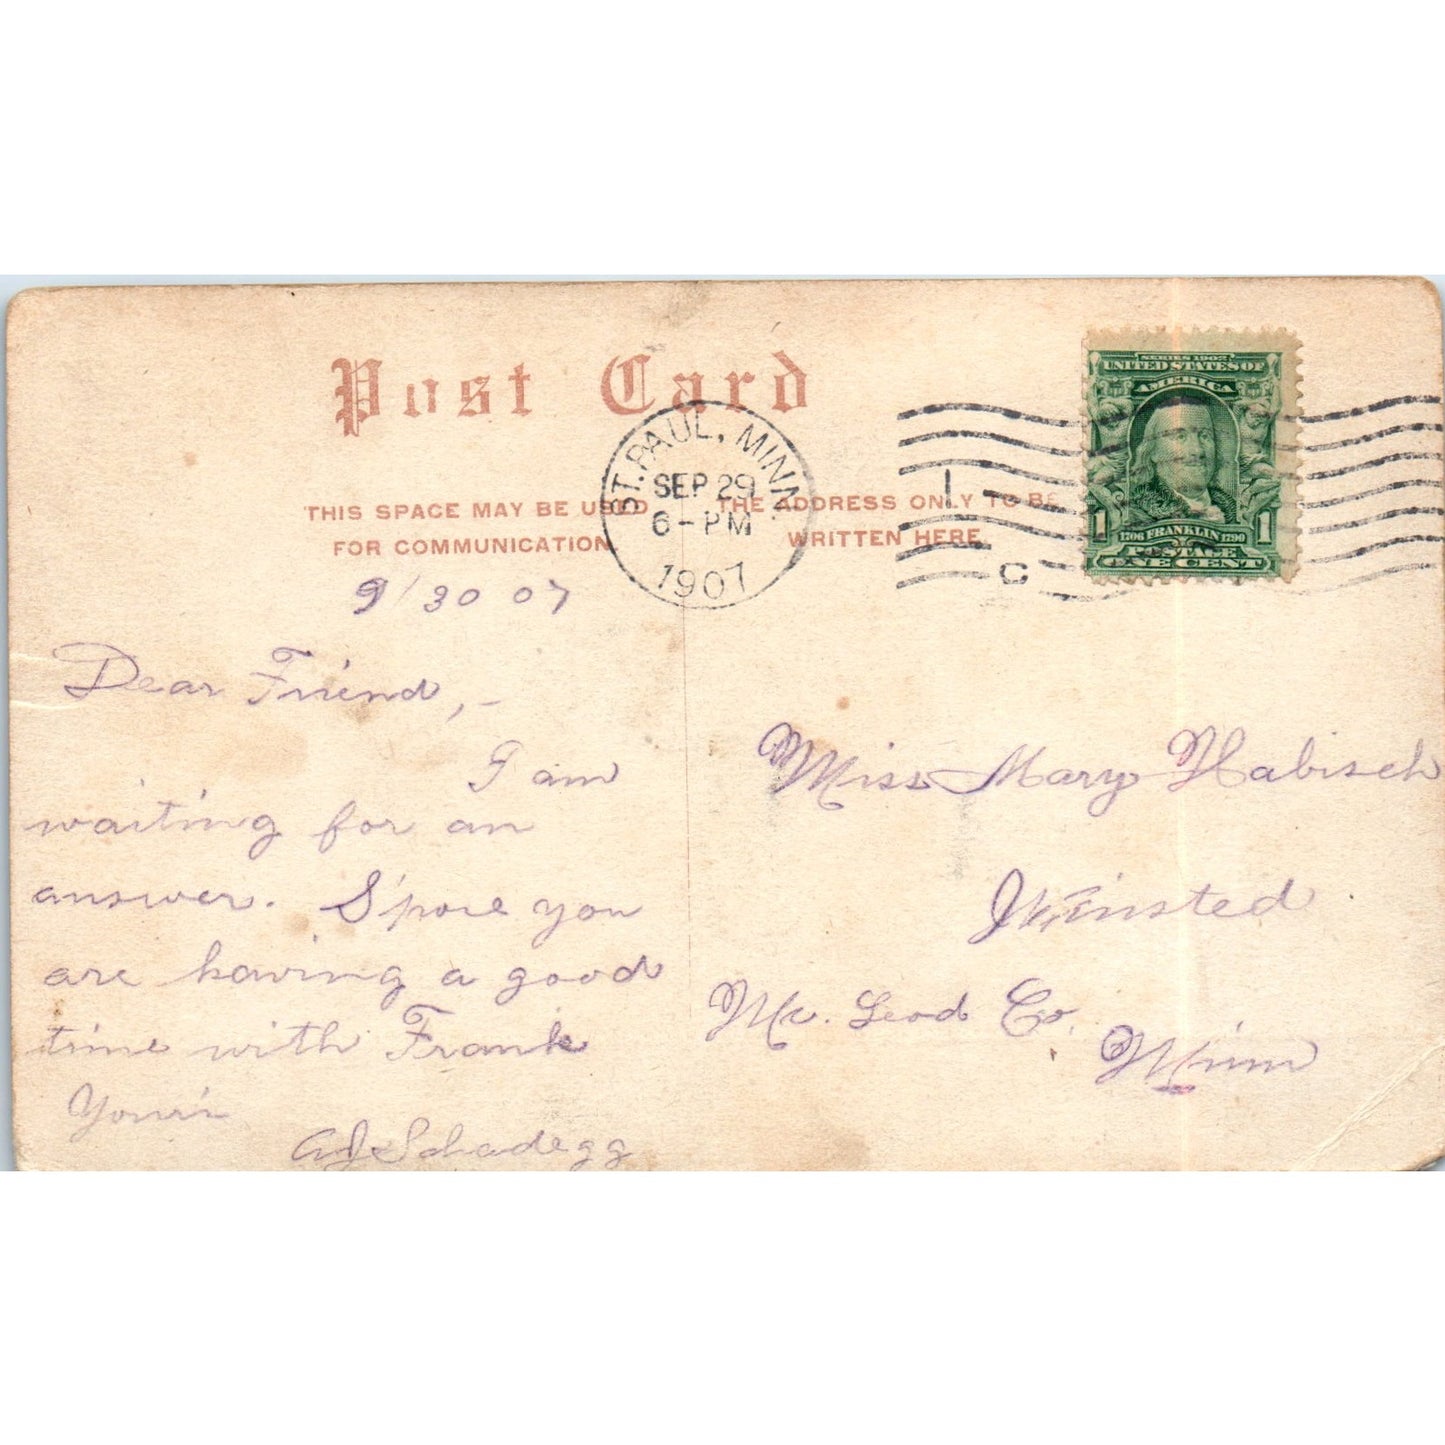 Post Card
THIS SPACE MAY BE USED
FOR COMMUNICATION
THE ADDRESS ONLY TO BE
WRITTEN HERE
ST. PAUL, MINN.
SEP 29
6-PM
1907
1
C
SERIES 1902
UNITED STATES OF
AMERICA
1706 FRANKLIN 1790
1 POSTAGE 1
ONE CENT
9/30 07
Dear Friend,-
I am
waiting for an
answer. S'pose you
are having a good
time with Frank
Your's
AJ Schadegg
Miss Mary Habisch
Winsted
Mc. Leod Co.
Minn